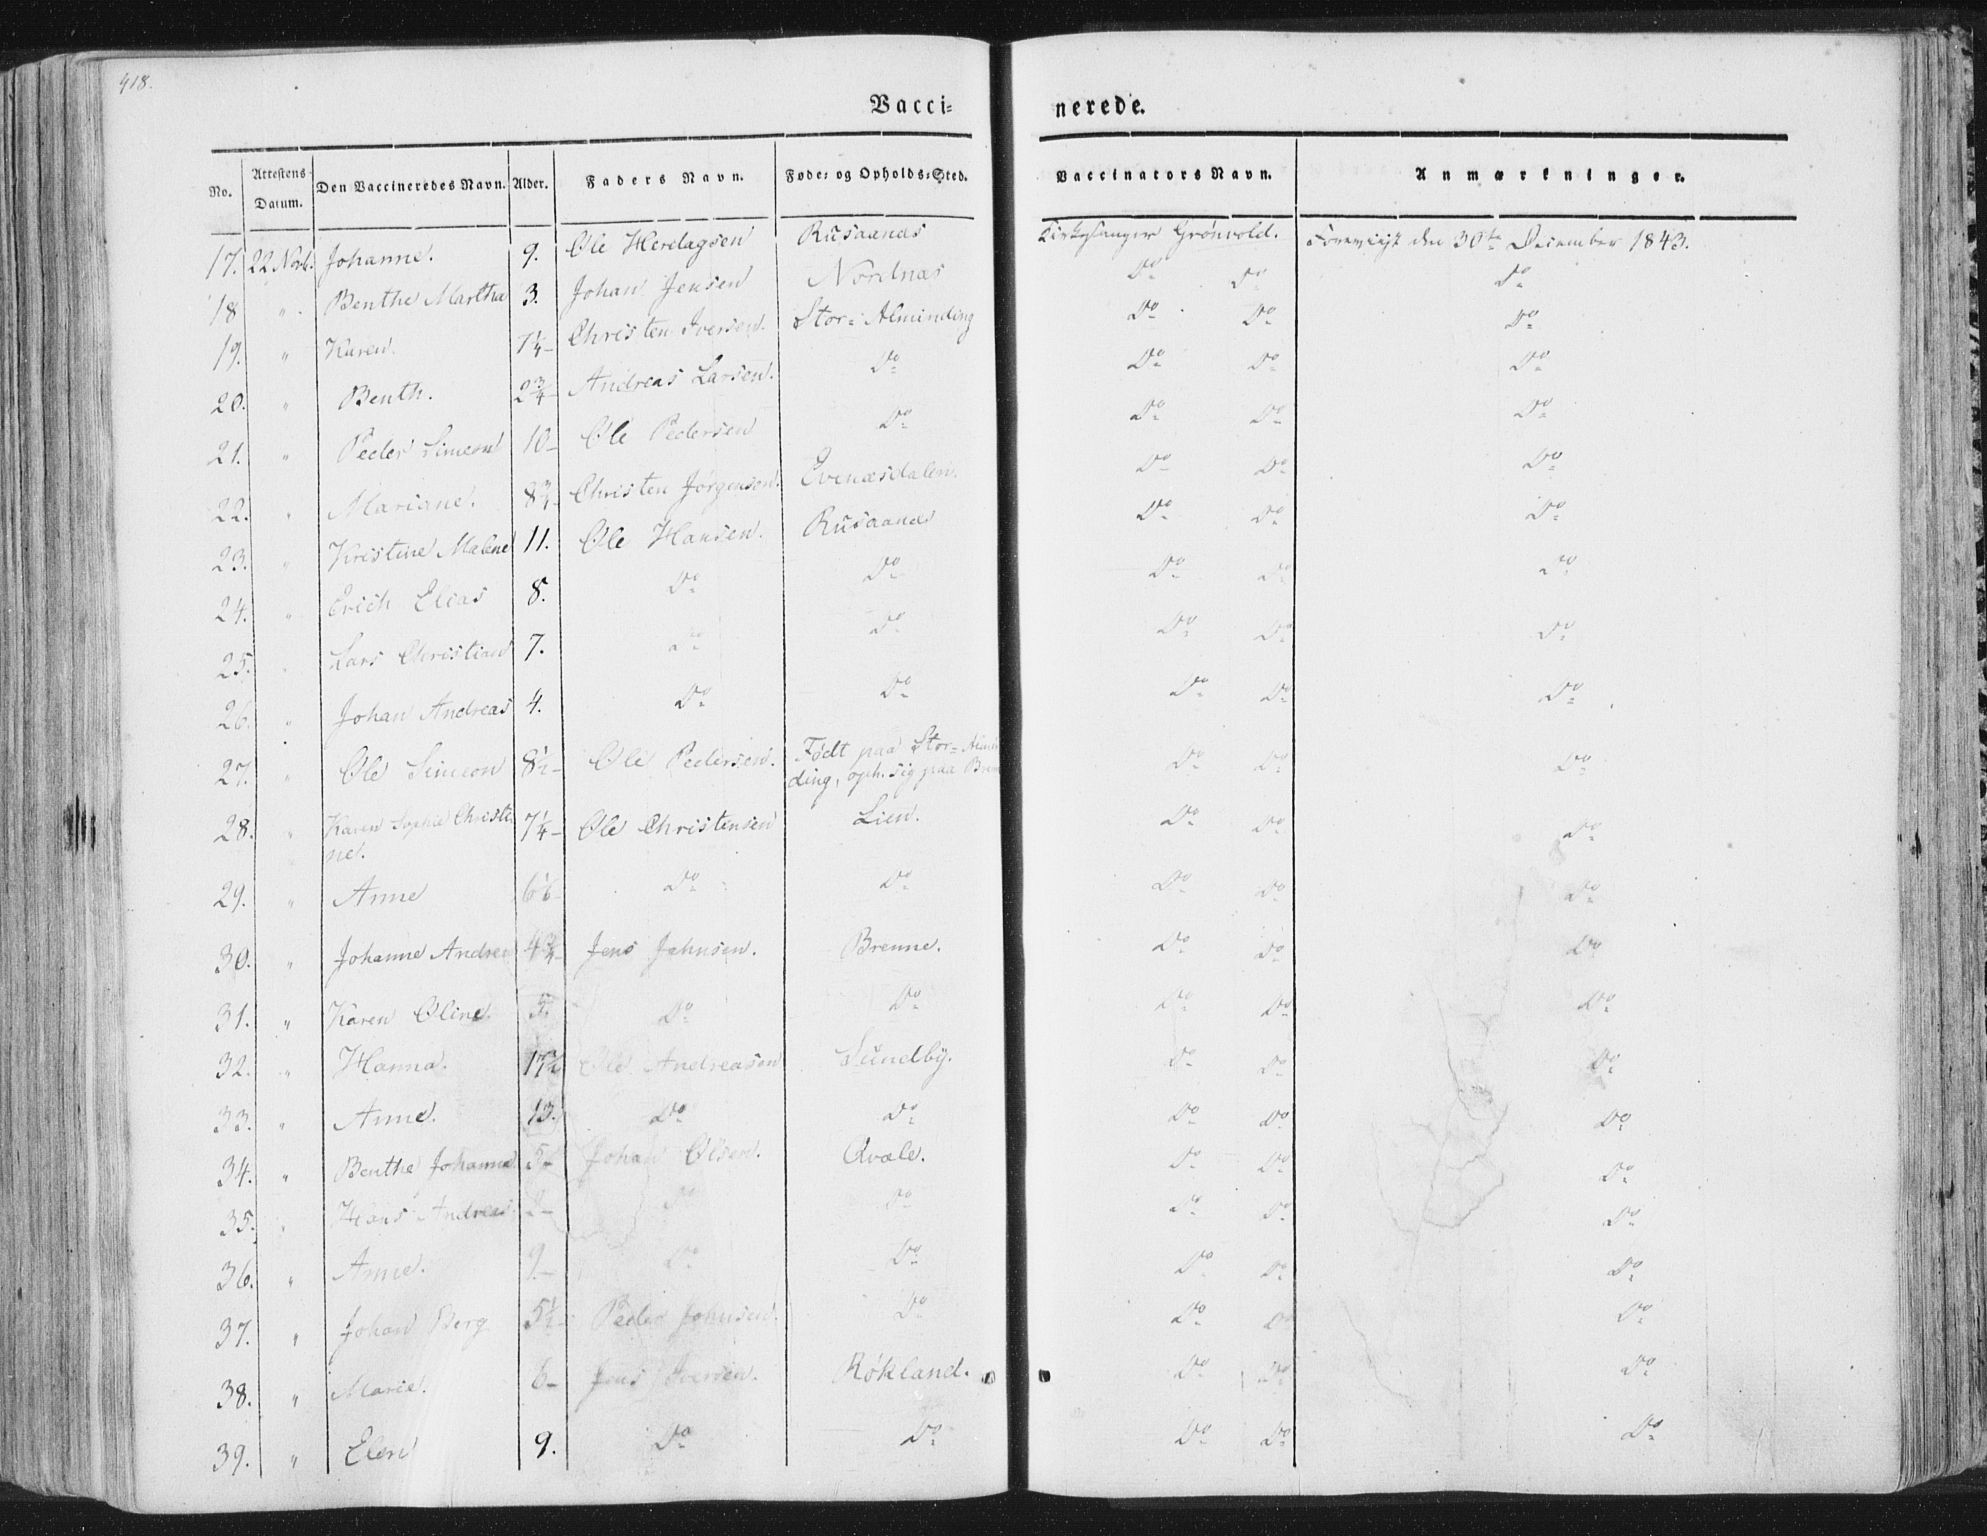 418.
Vacci= nerede.
No. Attestens Datum. Den Vaccineredes Navn. Alder. Faders Navn. Føde= og Opholds=Sted. Vaccinators Navn. Anmærkninger.
17. 22 Novb. Johanne. 9. Ole Herlagsen Rusaanes Kirkesanger Grönvold. Foreviist den 30te December 1843.
18 " Benthe Martha 3. Johan Jensen Nordnæs Do Do Do
19. " Karen. 7¼ Christen Iversen. Stor= Alminding Do Do Do
20. " Benth. 2¾ Andreas Larsen. Do Do Do Do
21. " Peder Simeon 10 Ole Pedersen Do Do Do Do
22. " Mariane. 8¾ Christen Jørgensen. Evenæsdalen. Do Do Do
23. " Kristine Malene 11. Ole Hansen. Rusaanes Do Do Do
24. " Erich Elias 8. Do Do Do Do Do
25. " Lars Christian 7. Do Do Do Do Do
26. " Johan Andreas 4. Do Do Do Do Do
27. " Ole Simeon 8½ Ole Pedersen. Født paa Stor= Almin
ding, oph. sig paa Brenne Do Do Do
28. " Karen Sophie Christi
ne. 7¼ Ole Christensen Lien. Do Do Do
29. " Anne Do Do Do Do Do
30. " Johanne Andrea 4¾ Jens Jahnsen. Brenne. Do Do Do
31. " Karen Oline. Do Do Do Do Do
32. " Hanna. Ole Andreasen Sundby. Do Do Do
33. " Anne. 13. Do Do Do Do Do
34. " Benthe Johanna Johan Olsen. Qvale. Do Do Do
35. " Hans Andreas Do Do Do Do Do
36. " Anne. 9. Do Do Do Do Do
37. " Johan Berg 5½ Peder Johnsen. Do Do Do Do
38. " Marie. 6 Jens Iversen. Røkland. Do Do Do
39. " Elen 9. Do Do Do Do Do